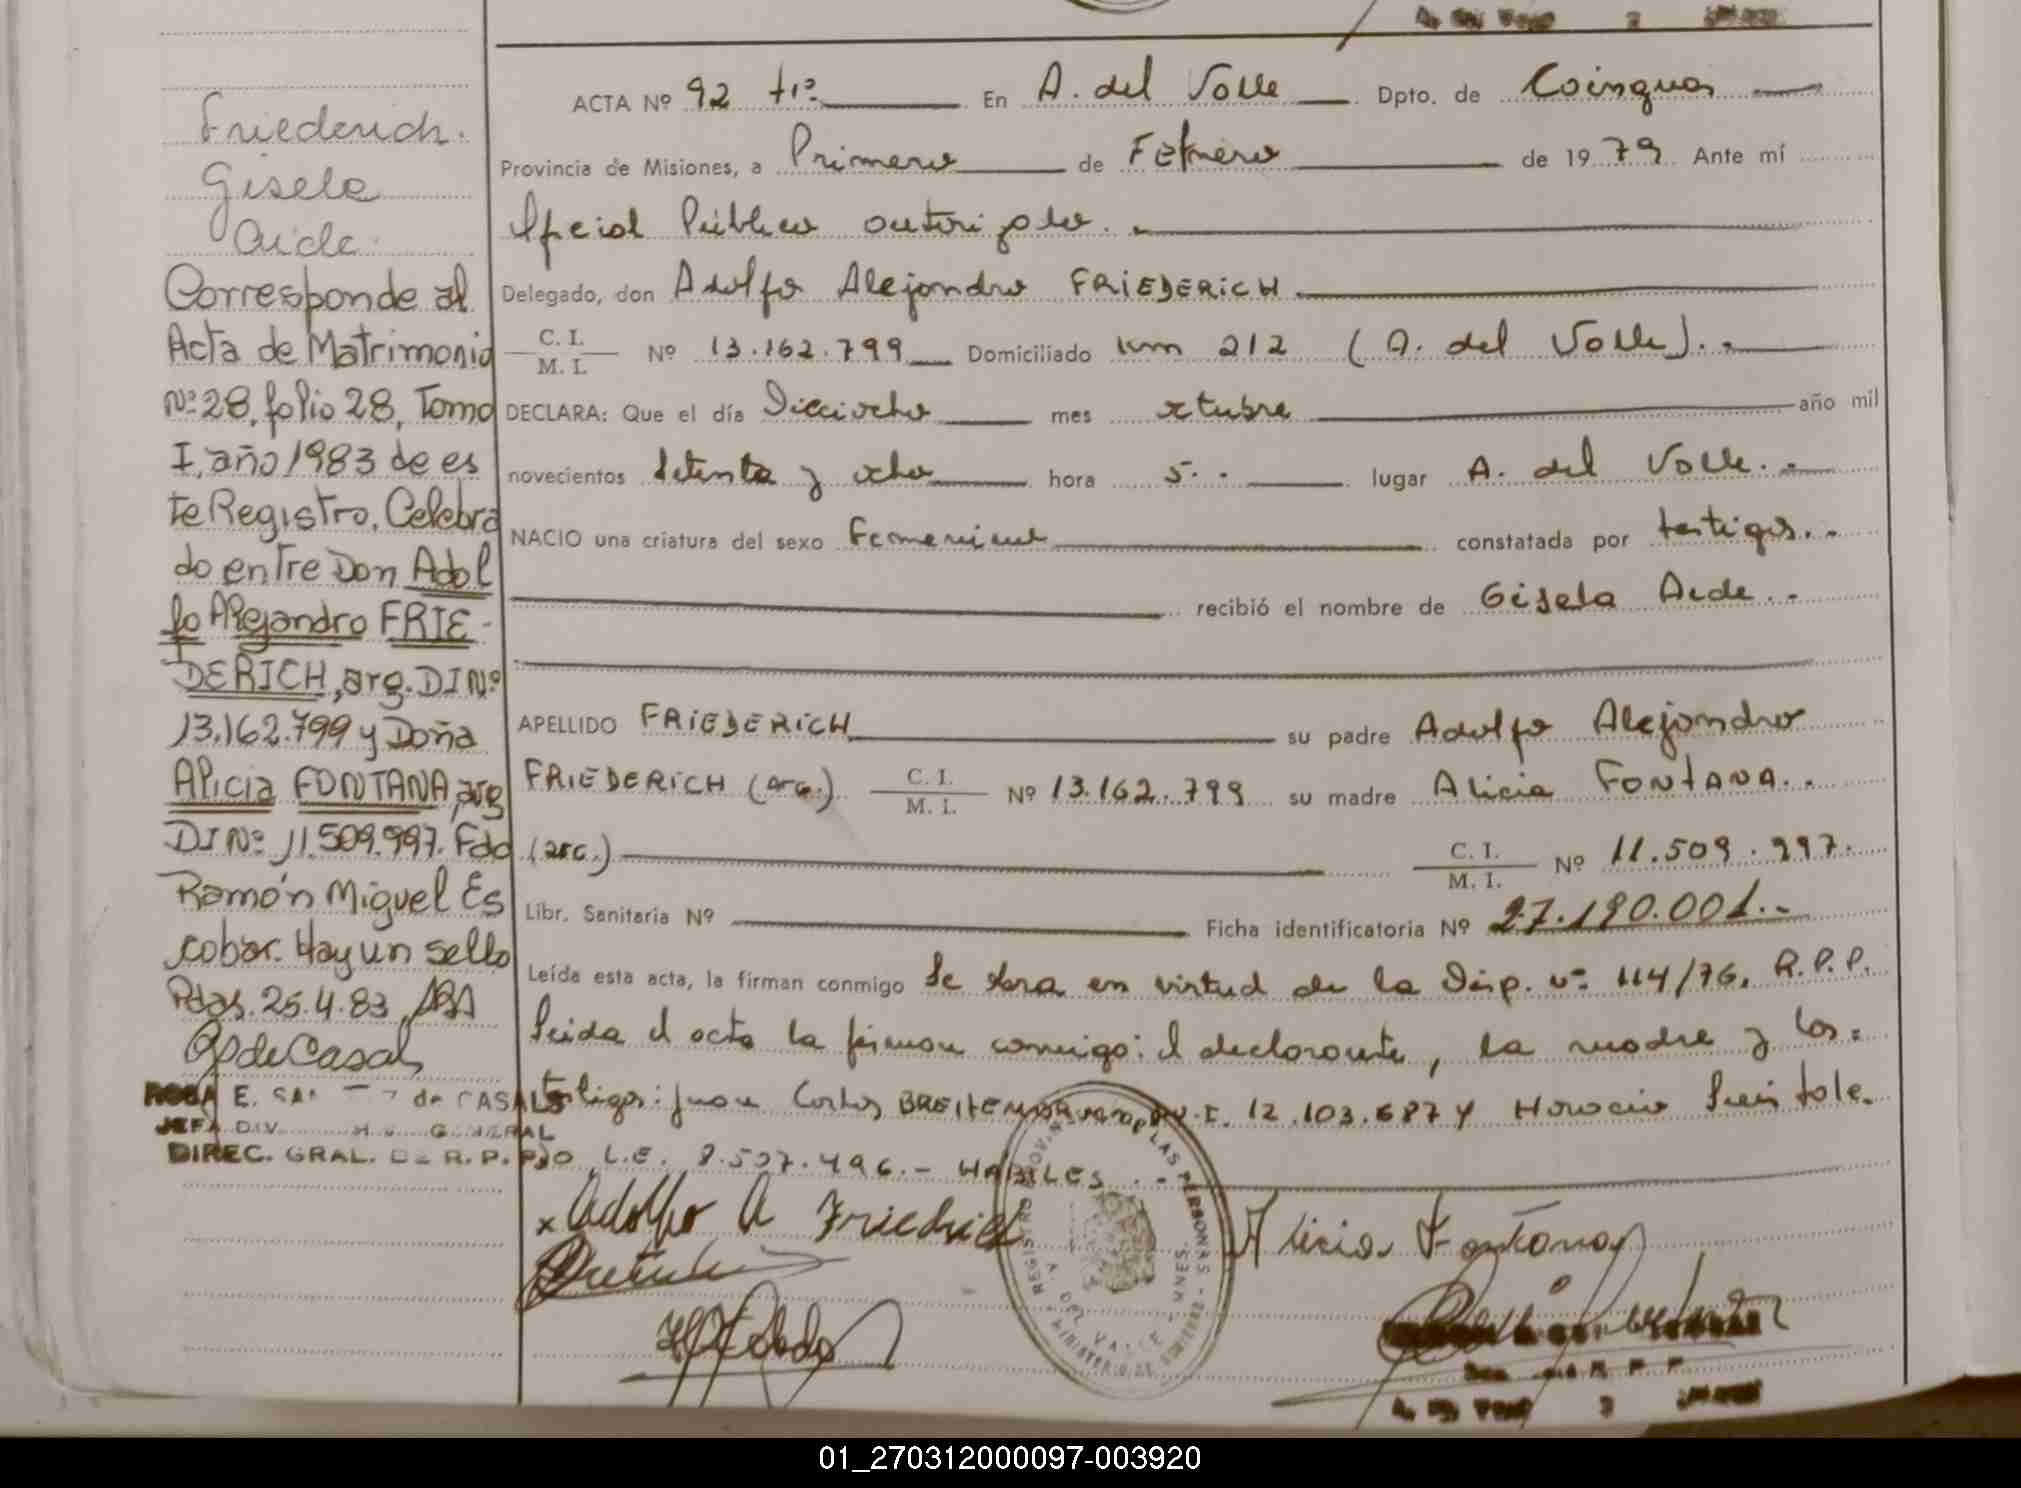 Friederich
Gisela
Aide
Corresponde al
Acta de Matrimonio
Nº 28, folio 28, Tomo
I, año 1983 de es
te Registro. Celebra
do entre Don Adol
fo Alejandro FRIE-
DERICH, arg. DI Nº
13.162.799 y Doña
Alicia FONTANA, arg
DI Nº 11.509.997. Fdo
Ramón Miguel Es
cobar. Hay un sello
Pdas. 25.4.83
de Casals
ROSA E. de CASALS
JEFA DIV. GENERAL
DIREC. GRAL. DE R. P. P.
ACTA Nº 92 tº. En A. del Valle Dpto. de Cainguas
Provincia de Misiones, a Primero de Febrero de 1979 Ante mí
Oficial Público autorizado.
Delegado, don Adolfo Alejandro FRIEDERICH
C. I. / M. I. Nº 13.162.799 Domiciliado km 212 (A. del Valle).
DECLARA: Que el día Dieciocho mes octubre año mil
novecientos setenta y ocho hora 5. lugar A. del Valle.
NACIO una criatura del sexo Femenino constatada por testigos.
recibió el nombre de Gisela Aide.
APELLIDO FRIEDERICH su padre Adolfo Alejandro
FRIEDERICH (arg.) C. I. / M. I. Nº 13.162.799 su madre Alicia FONTANA.
(arg.) C. I. / M. I. Nº 11.509.997.
Libr. Sanitaria Nº Ficha identificatoria Nº 27.190.001.-
Leída esta acta, la firman conmigo Se labra en virtud de la Disp. nº 114/76, R.P.P.
Leida el acta la firman conmigo: el declarante, la madre y los
testigos: Juan Carlos M.I. 12.103.687 y Horacio Luis Tole
do L.E. 8.507.496.- HABILES.-
x Adolfo A Friedrich
Alicia Fontana
REGISTRO PROVINCIAL DE LAS PERSONAS - MNES.
A. DEL VALLE
MINISTERIO DE GOBIERNO
01_270312000097-003920